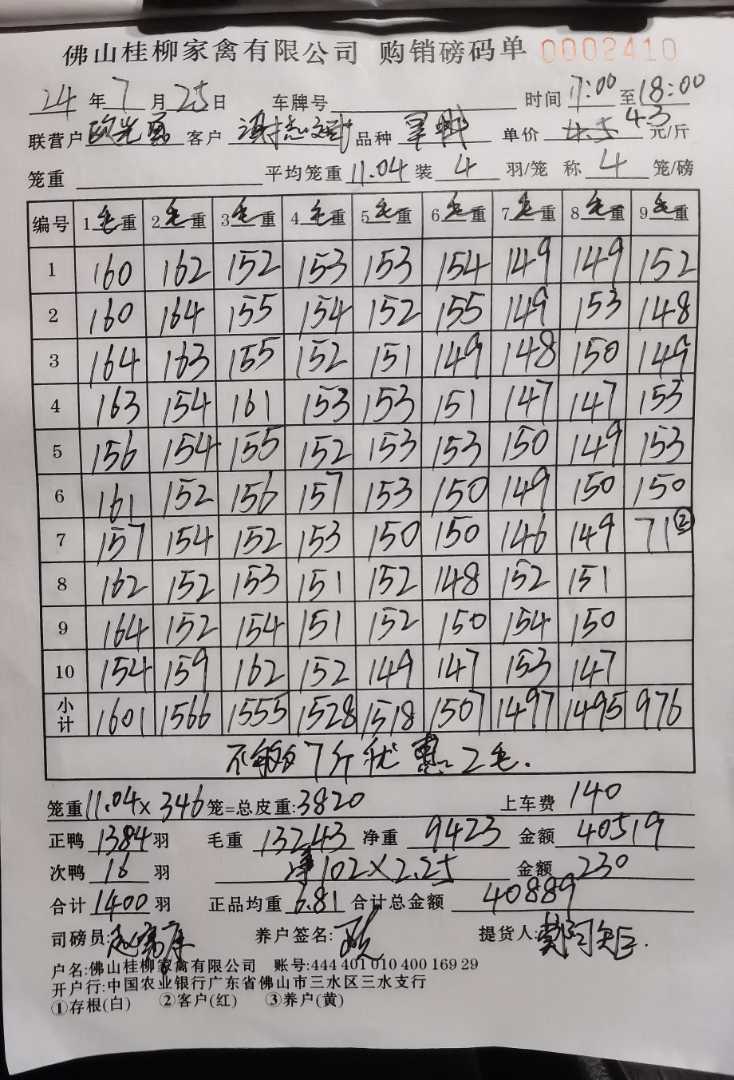 佛山桂柳家禽有限公司 购销磅码单 0002410
24年7月25日 车牌号 时间17:00至18:00
联营户 客户 品种 单价 4.5 4.3 元/斤
笼重 平均笼重11.04装4羽/笼 称4笼/磅
编号 1毛重 2毛重 3毛重 4毛重 5毛重 6毛重 7毛重 8毛重 9毛重
1 160 162 152 153 153 154 149 149 152
2 160 164 155 154 152 155 149 153 148
3 164 163 155 152 151 149 148 150 149
4 163 154 161 153 153 151 147 147 153
5 156 154 155 152 153 153 150 149 153
6 161 152 156 157 153 150 149 150 150
7 157 154 152 153 150 150 146 149 71②
8 162 152 153 151 152 148 152 151
9 164 152 154 151 152 150 154 150
10 154 159 162 152 149 147 153 147
小计 1601 1566 1555 1528 1518 1507 1497 1495 976
不够7斤优惠2毛.
笼重11.04×346笼=总皮重:3820 上车费 140
正鸭1384羽 毛重 13243 净重 9423 金额 40519
次鸭16羽 净102×2.25 金额 230
合计1400羽 正品均重6.81 合计总金额 40889
司磅员: 养户签名: 提货人:
户名:佛山桂柳家禽有限公司 账号:444 401 010 400 169 29
开户行:中国农业银行广东省佛山市三水区三水支行
①存根(白) ②客户(红) ③养户(黄)